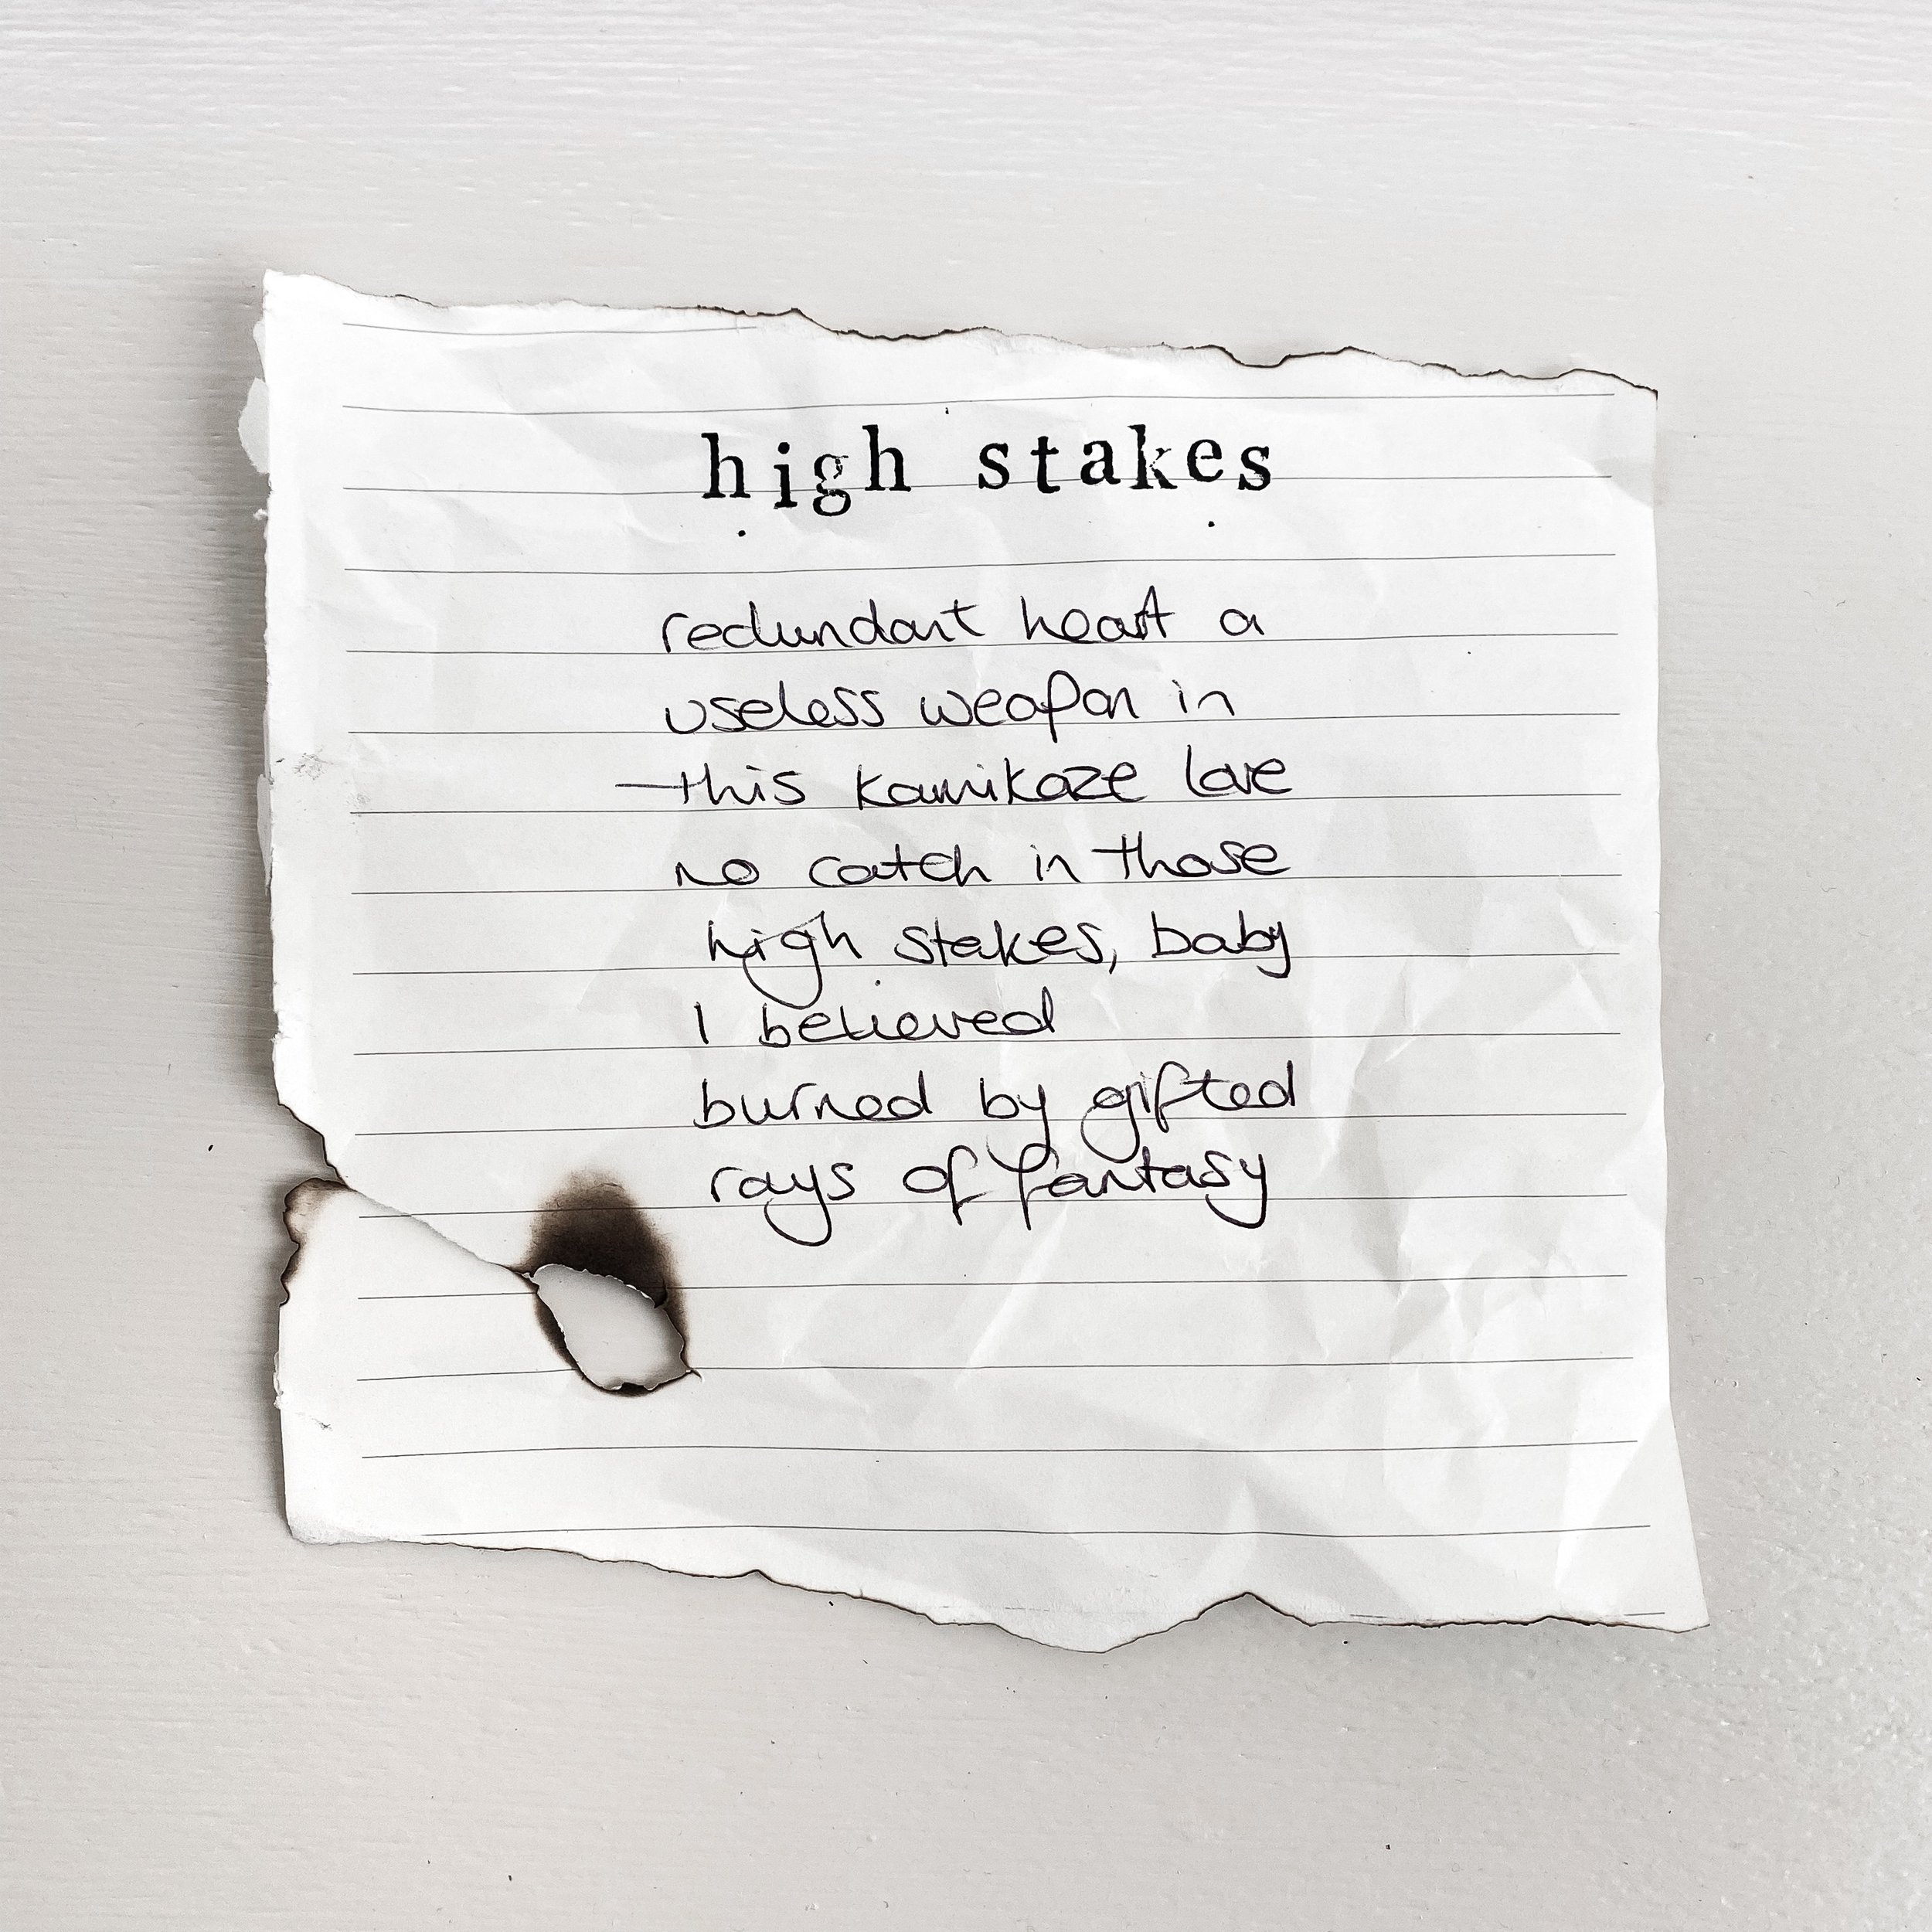 high stakes
redundant heart a
useless weapon in
this kamikaze love
no catch in those
high stakes, baby
I believed
burned by gifted
rays of fantasy